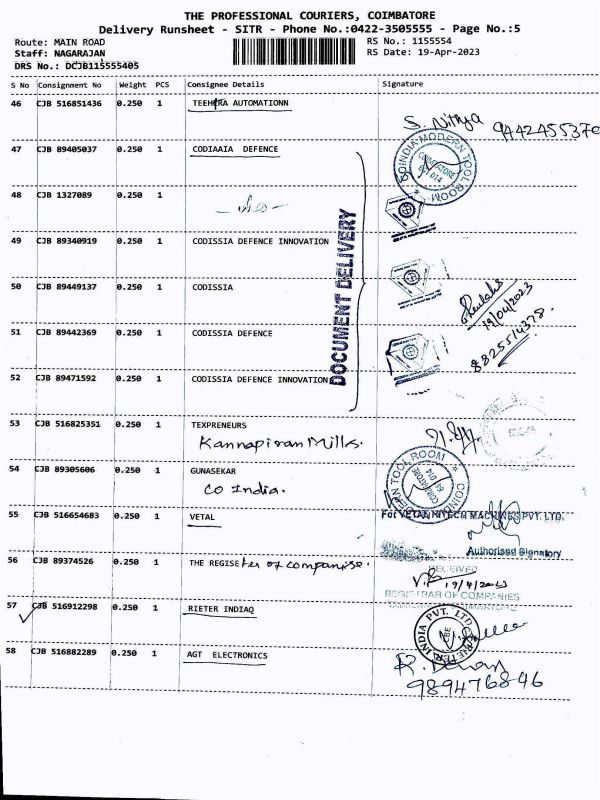 THE PROFESSIONAL COURIERS, COIMBATORE
Delivery Runsheet - SITR - Phone No.:0422-3505555 - Page No.:5
Route: MAIN ROAD RS No.: 1155554
Staff: NAGARAJAN RS Date: 19-Apr-2023
DRS No.: DCJB115555405
S No Consignment No Weight PCS Consignee Details Signature
46 CJB 516851436 0.250 1 TEEHRA AUTOMATIONN
S. Nithya 9442455370
47 CJB 89405037 0.250 1 CODIAAIA DEFENCE
COINDIA-MODERN TOOL ROOM
COIMBATORE 641 014
48 CJB 1327089 0.250 1
49 CJB 89340919 0.250 1 CODISSIA DEFENCE INNOVATION
DOCUMENT DELIVERY
50 CJB 89449137 0.250 1 CODISSIA
19/04/2023
8825514378.
51 CJB 89442369 0.250 1 CODISSIA DEFENCE
52 CJB 89471592 0.250 1 CODISSIA DEFENCE INNOVATIONS
53 CJB 516825351 0.250 1 TEXPRENEURS
Kannapiran Mills.
54 CJB 89305606 0.250 1 GUNASEKAR
CO India.
TOOL ROOM
55 CJB 516654683 0.250 1 VETAL
For VETAL HITECH MACHINES PVT. LTD.
Authorised Signatory
56 CJB 89374526 0.250 1 THE REGISEter of companise.
RECEIVED
19/4/2023
REGISTRAR OF COMPANIES
57 CJB 516912298 0.250 1 RIETER INDIAQ
RIETER INDIA PVT. LTD
58 CJB 516882289 0.250 1 AGT ELECTRONICS
989476846